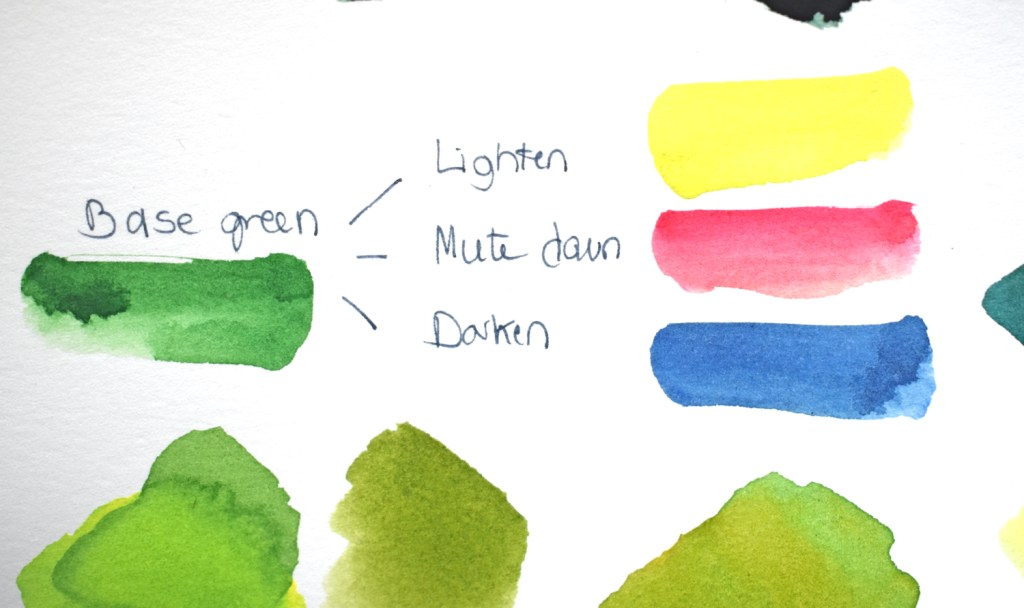 Base green
Lighten
Mute down
Darken